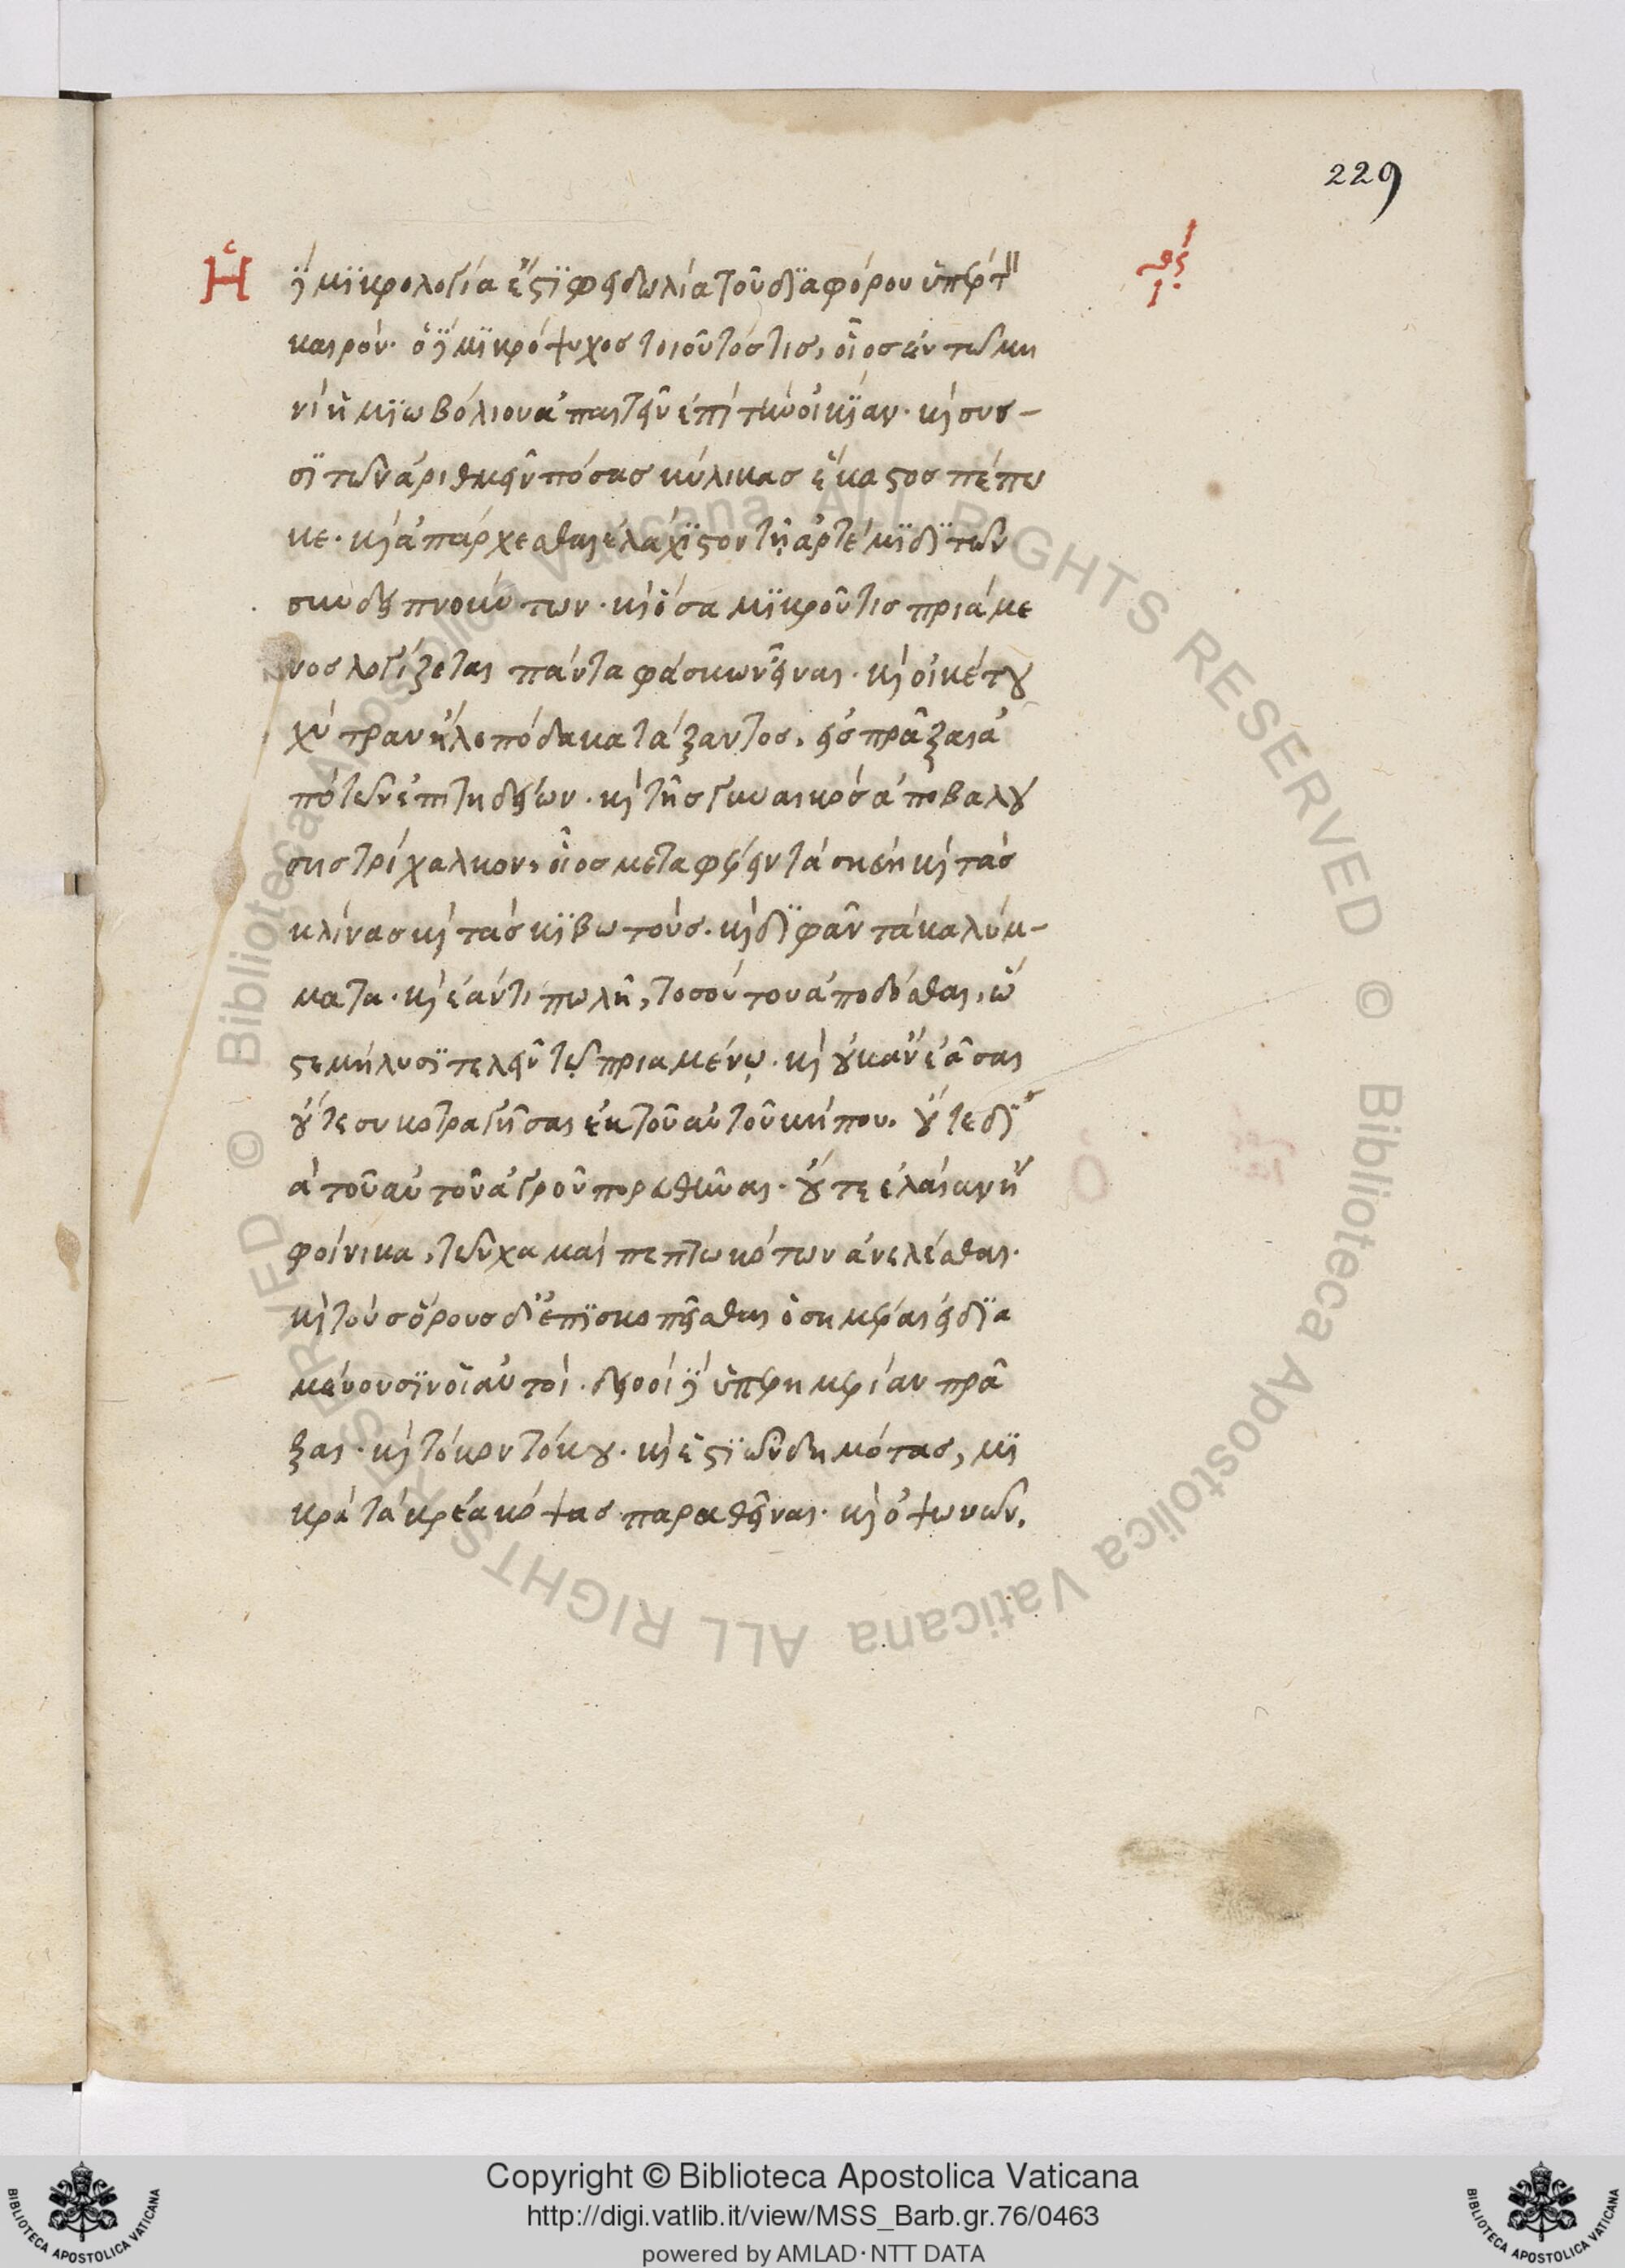 229
Ἡ δὲ μικρολογία ἐστὶ φειδωλία τοῦ διαφόρου ὑπὲρ τὸν
καιρόν. ὁ δὲ μικρόψυχος τοιοῦτός τις, οἷος ἐν τῷ μη
νὶ ἡμιωβόλιον ἀπαιτεῖν ἐπὶ τὴν οἰκίαν. καὶ συσ-
σιτῶν ἀριθμεῖν πόσας κύλικας ἕκαστος πέπω
κε. καὶ ἀπάρχεσθαι ἐλάχιστον τῇ ἀρτέμιδι τῶν
συνδειπνούντων. καὶ ὅσα μικροῦ τις πριάμε
νος λογίζεται πάντα φάσκων εἶναι. καὶ οἰκέτου
χύτραν ἢ λοπάδα κατάξαντος, εἰσπρᾶξαι ἀ
πὸ τῶν ἐπιτηδείων. καὶ τῆς γυναικὸς ἀποβαλού
σης τρίχαλκον, οἷος μεταφέρειν τὰ σκεύη καὶ τὰς
κλίνας καὶ τὰς κιβωτούς. καὶ διφᾶν τὰ καλύμ-
ματα. καὶ ἐάν τι πωλῇ, τοσούτου ἀποδόσθαι, ὥ
στε μὴ λυσιτελεῖν τῷ πριαμένῳ. καὶ οὐκ ἂν ἐᾶσαι
οὔτε συκοτραγῆσαι ἐκ τοῦ αὐτοῦ κήπου. οὔτε δι
ὰ τοῦ αὐτοῦ ἀγροῦ πορευθῆναι. οὔτε ἐλαίαν ἢ
φοίνικα, τῶν χαμαὶ πεπτωκότων ἀνελέσθαι.
καὶ τοὺς ὅρους δ' ἐπισκοπεῖσθαι ὁσημέραι εἰ δια
μένουσιν οἱ αὐτοί. δεινοὶ δὲ ὑπερημερίαν πρᾶ
ξαι. καὶ τόκον τόκου. καὶ ἑστιῶν δημότας, μι
κρὰ τὰ κρέα κόψας παραθεῖναι. καὶ ὀψωνῶν,
Copyright © Biblioteca Apostolica Vaticana
http://digi.vatlib.it/view/MSS_Barb.gr.76/0463
powered by AMLAD·NTT DATA